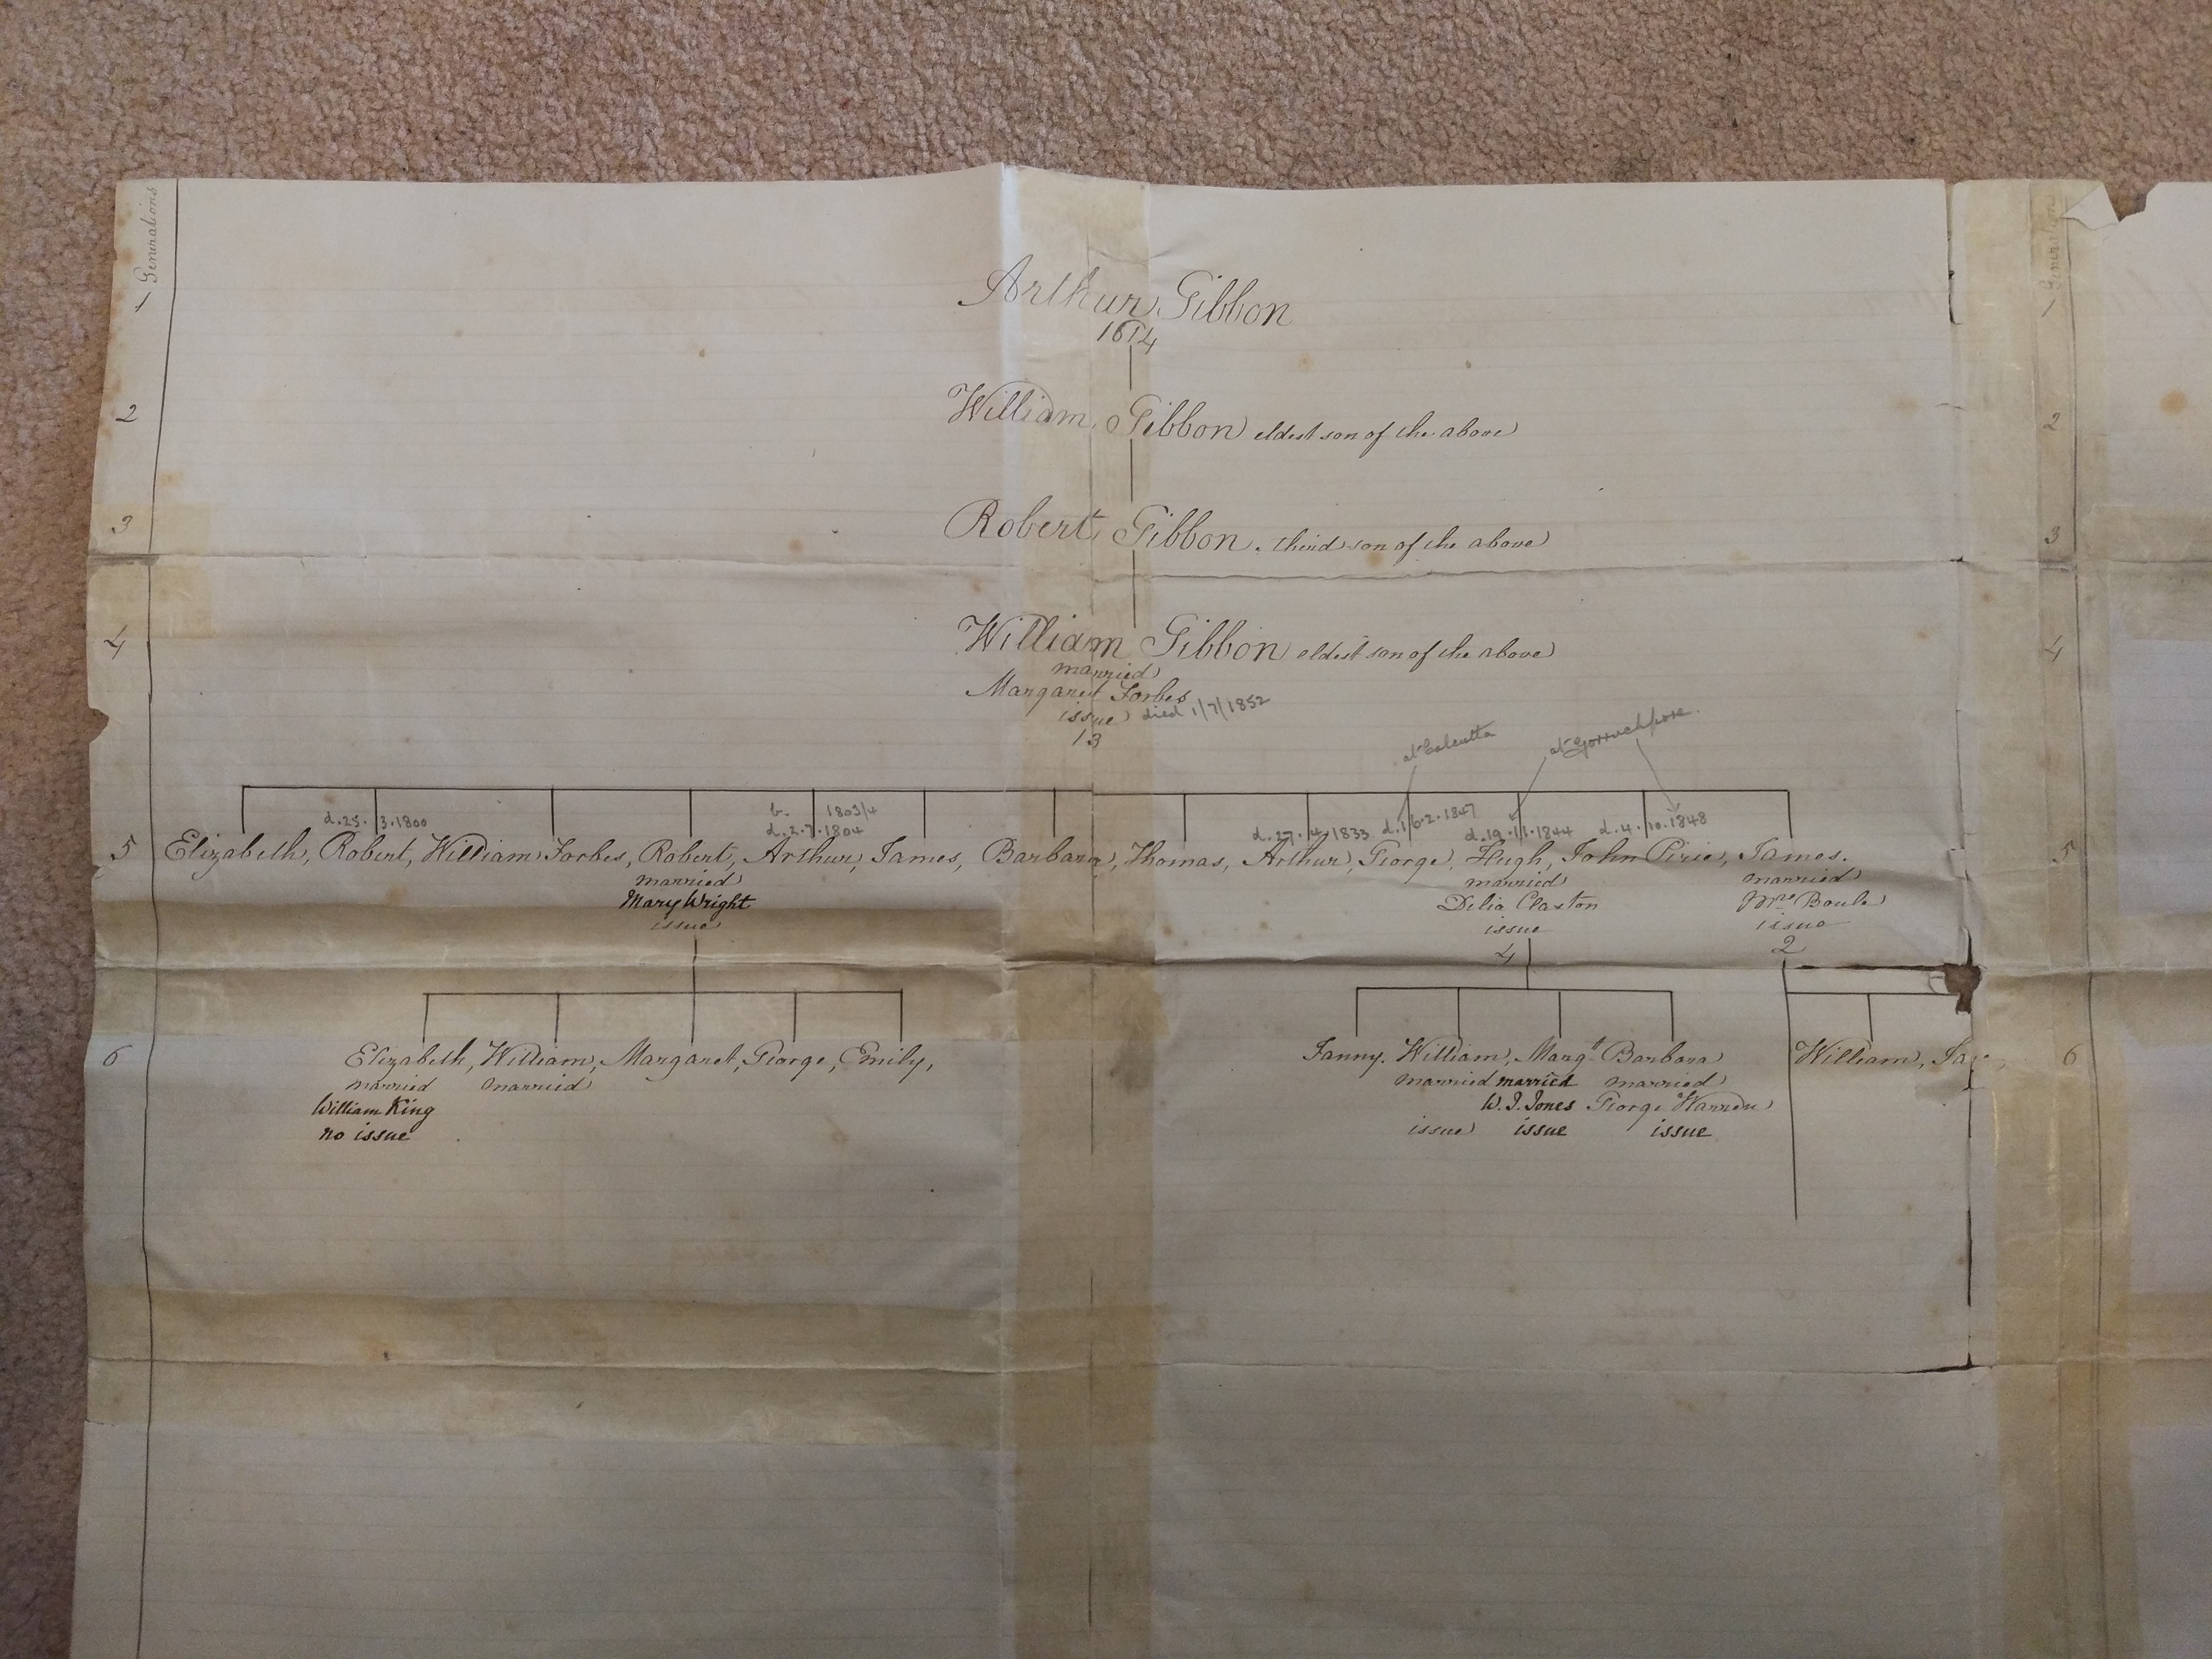 Generations
1
Arthur Gibbon
2
William Gibbon eldest son of the above
2
3
Robert Gibbon. third son of the above
3
4
William Gibbon eldest son of the above
4
married
Margaret Forbes
issue died 1/7/1852
13
at Calcutta
d. 25. 3. 1800
b. 1803/4
d. 2. 7. 1804
d. 27. 4. 1833 d. 16. 2. 1847 d. 19. 11. 1844 d. 4. 10. 1848
5 Elizabeth, Robert, William Forbes, Robert, Arthur, James, Barbara, Thomas, Arthur, George, Hugh, John Pirie, James. 5
married married married
Mary Wright Delia Claxton
issue issue issue
4 2
6 Elizabeth, William, Margaret, George, Emily, Fanny. William, Margt Barbara William, Ja 6
married married married married married
William King W. J. Jones George Warren
no issue issue issue issue